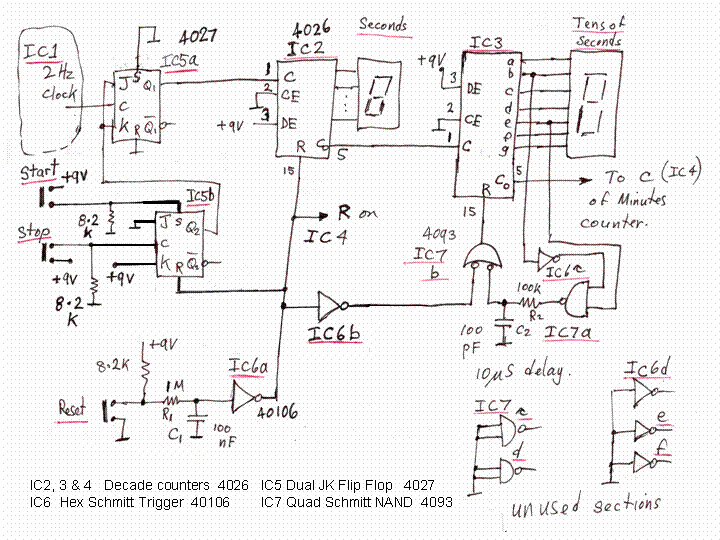 IC1
2 Hz
clock
4027
IC5a
J S Q1
C
K R Q̅1
4026
IC2
1 C
2 CE
3 DE
+9V
R Co
15
5
Seconds
IC3
+9V
3
DE
2
CE
1
C
a
b
c
d
e
f
g
5
Co
R
15
Tens of
Seconds
To C (IC4)
of Minutes
counter.
Start
+9V
8.2
K
Stop
+9V
8.2
K
+9V
IC5b
J S Q2
C
K
R
R on
IC4
4093
IC7
b
IC6c
100K
R2
C2
100
pF
IC7a
10µS delay.
IC6b
+9V
8.2K
Reset
1M
R1
C1
100
nF
IC6a
40106
IC7
c
d
IC6d
e
f
unused sections
IC2, 3 & 4 Decade counters 4026 IC5 Dual JK Flip Flop 4027
IC6 Hex Schmitt Trigger 40106 IC7 Quad Schmitt NAND 4093